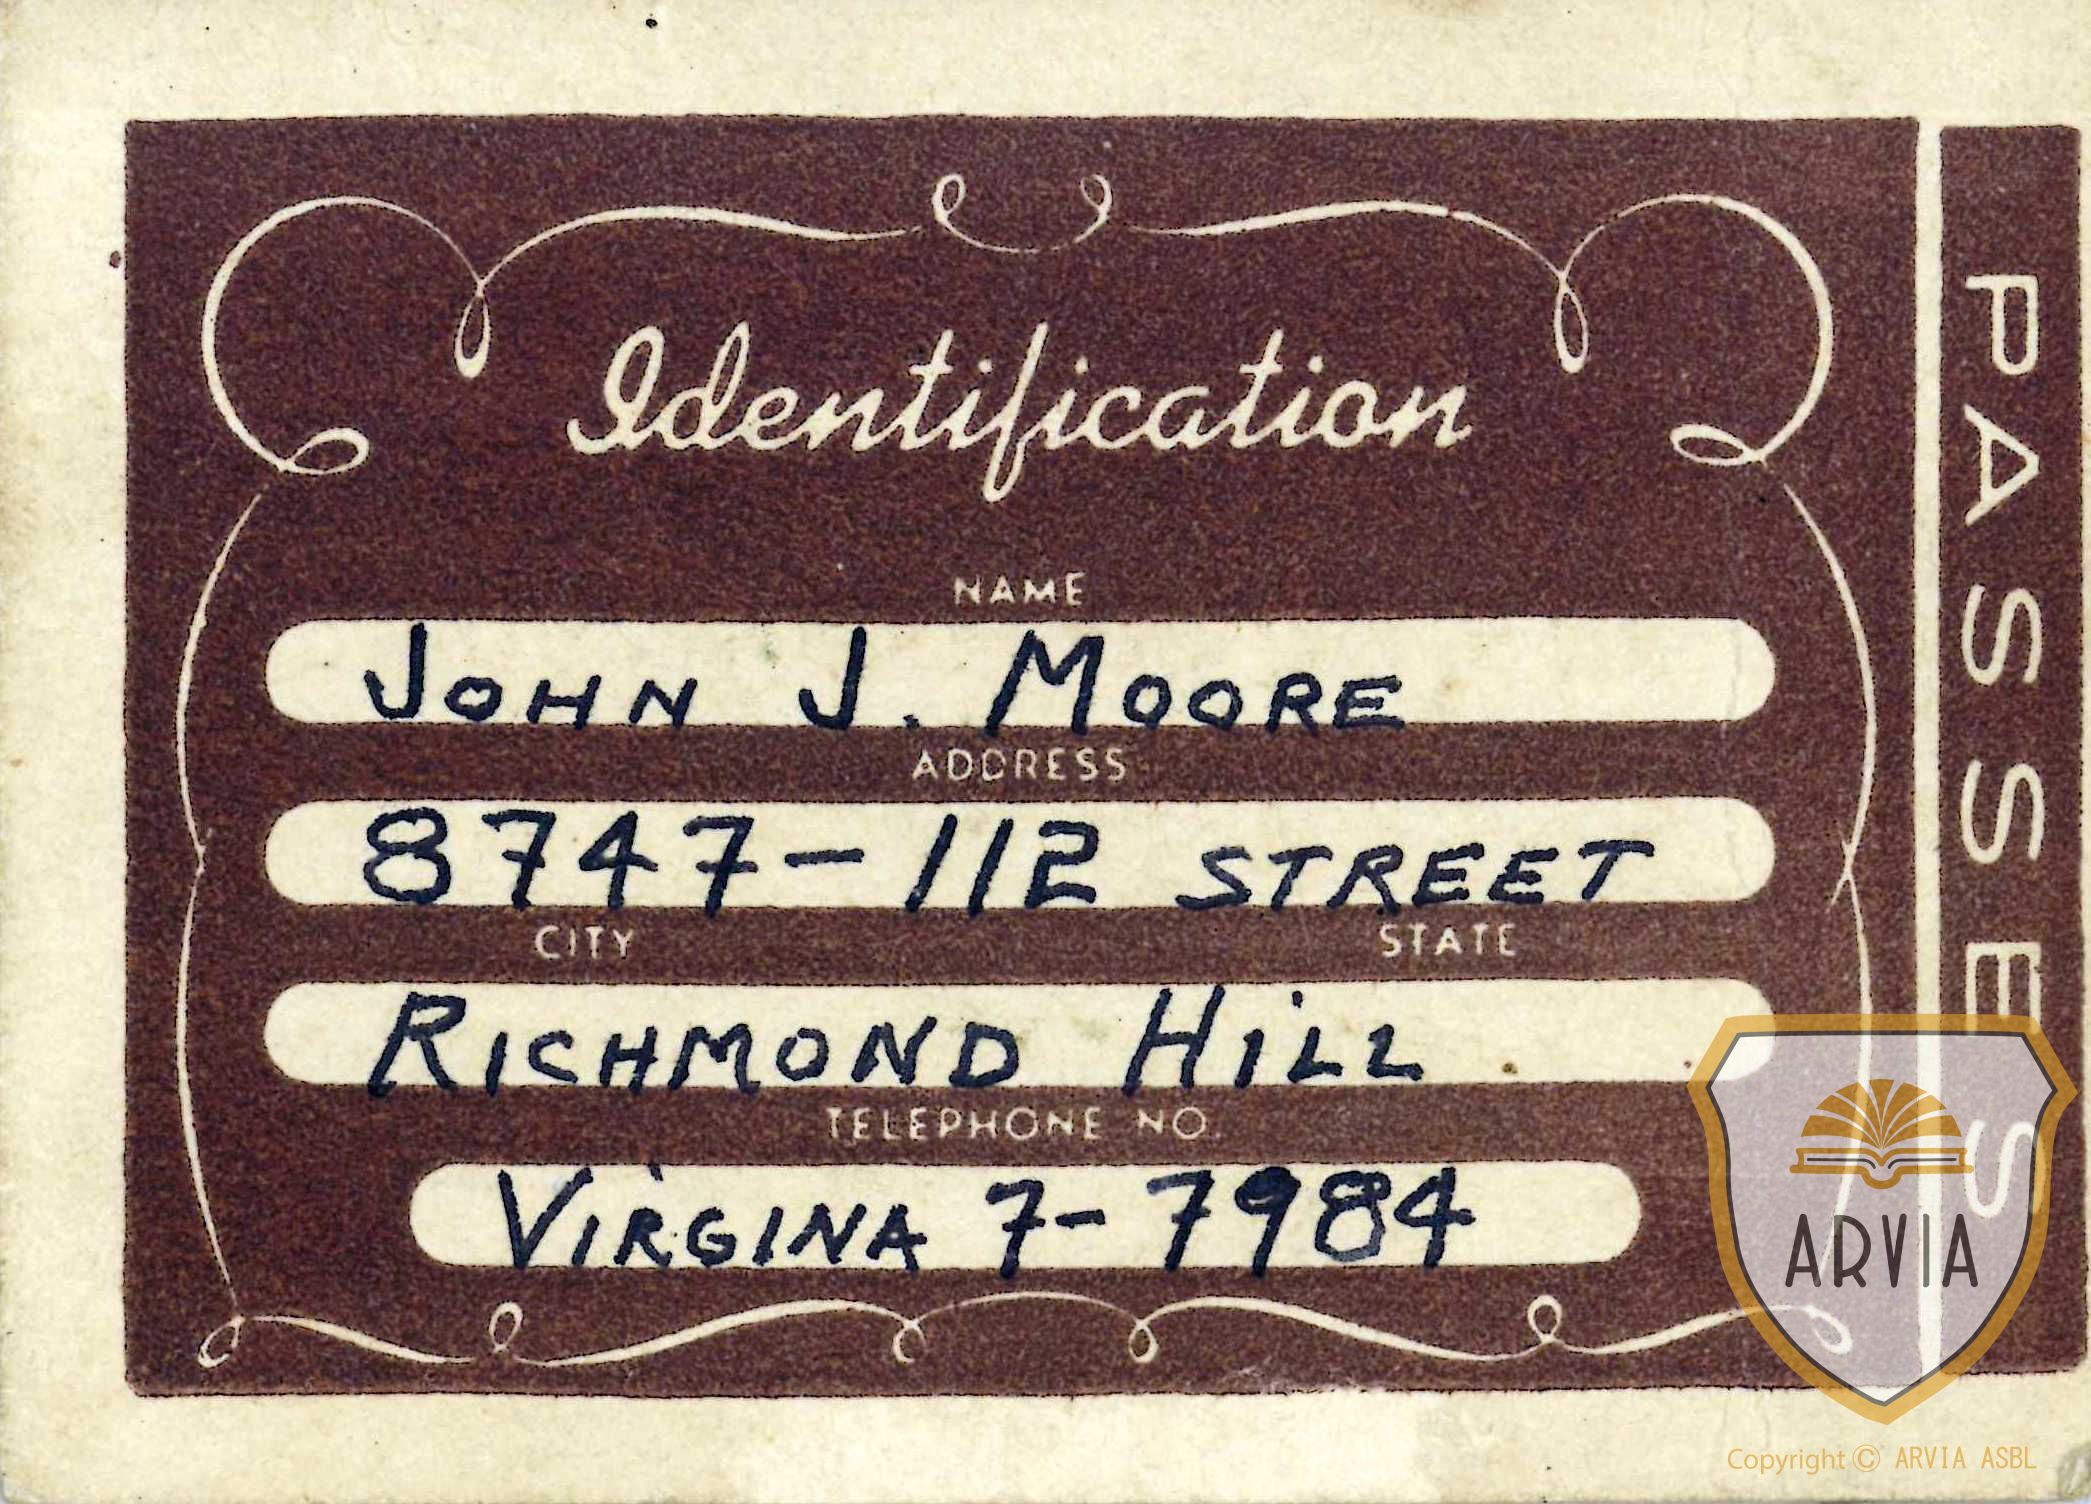 Identification
NAME
JOHN J. MOORE
ADDRESS
8747-112 STREET
CITY STATE
RICHMOND HILL
TELEPHONE NO.
VIRGINA 7-7984
PASSES
ARVIA
Copyright © ARVIA ASBL